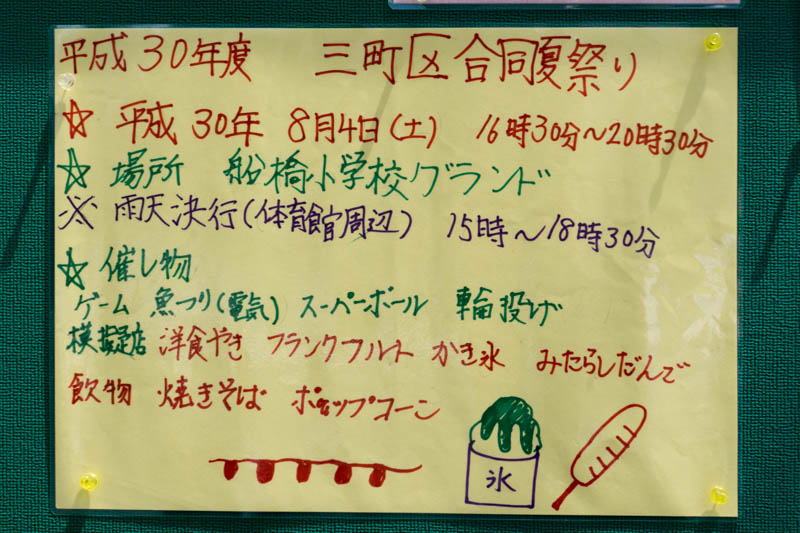 平成30年度 三町区合同夏祭り
☆ 平成30年 8月4日(土) 16時30分〜20時30分
☆ 場所 船橋小学校グランド
※ 雨天決行(体育館周辺) 15時〜18時30分
☆ 催し物
ゲーム 魚つり(電気) スーパーボール 輪投げ
模擬店 洋食やき フランクフルト かき氷 みたらしだんご
飲物 焼きそば ポップコーン
氷